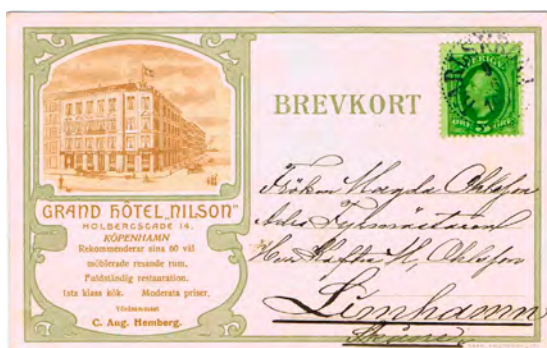 GRAND HÔTEL „NILSON"
HOLBERGSGADE 14.
KÖPENHAMN
Rekommenderar sina 60 väl
möblerade resande rum.
Fuldständig restauration.
1sta klass kök. Moderata priser.
Vördsammast
C. Aug. Hemberg.
BREVKORT
SVERIGE
Fröken Magda Ohlsson
Adr. Fyrmästaren
Herr H, Ohlsson
Limhamn
Skåne